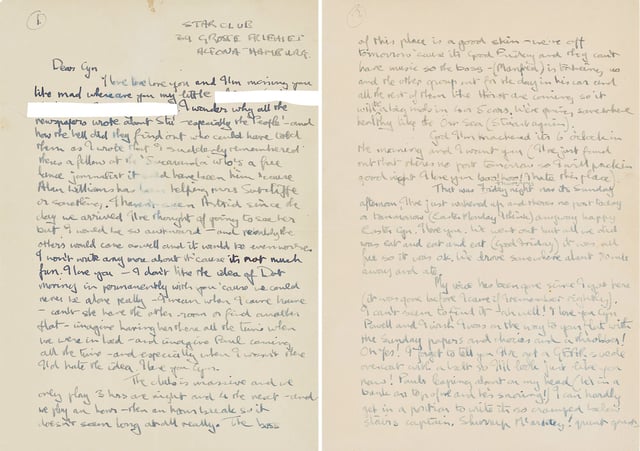 1
STAR CLUB
39 GROSSE FREIHEIT
ALTONA HAMBURG.
Dear Cyn
I love love love you and I'm missing you
like mad where are you my little
I wonder why all the
newspapers wrote about Stu - especially the 'People' - and
how the hell did they find out who could have told
them as I wrote that I suddenly remembered
there's a fellow at the who's a free
lance journalist it have been him because
Allan Williams has helping Mrs Sutcliffe
or something. I haven't seen Astrid since the
day we arrived I've thought of going to see her
but I would be so awkward - and probably the
others would come as well and it would be even worse.
I won't write any more about it 'cause it's not much
fun. I love you - I don't like the idea of Dot
moving in permanently with you 'cause we could
never be alone really - I mean when I come home
- can't she have the other room or find another
flat - imagine having her there all the time when
we were in bed - and imagine Paul coming
all the time - and especially when I wasn't there
I'd hate the idea. I love you Cyn.
The club is massive and we
only play 3 hrs one night and 4 the next - and
we play an hour - then an hours break so it
doesn't seem long at all really. The boss
3
of this place is a good skin - we're off
tomorrow 'cause it's Good Friday and they can't
have music so the boss - (Manfred) is taking us
and the other group out for the day in his car and
all the rest of them like Horst are coming, so it
will be a big mob in 4 or 5 cars, We're going somewhere
healthy like the Ost Sea (Stuart again).
God I'm knackered it's 6 o'clock in
the morning and I want you (I've just found
out that there's no post tomorrow so I will pack in
good night I love you boo hoo I hate this place).
That was Friday night now its Sunday
afternoon, I've just wakened up and there's no post today
or tomorrow (Easter Monday I think) anyway happy
Easter Cyn I love you. We went out but all we did
was eat and eat and eat (Good Friday) it was all
free so it was ok. We drove somewhere about 70 mls
away and ate.
My voice has been gone since I got here
(it was gone before I came if I remember rightly).
I can't seem to find it - ah well! I love you Cyn
Powell and I wish I was on the way to your flat with
the Sunday papers and chocies and a throbber!
Oh yes! I forgot to tell you I've got a GEAR suede
overcoat with a belt so I'll look just like you
now! Paul's leaping about on my head (he's in a
bunk on top of me and he's snoring!) I can hardly
get in a position to write its so cramped below
stairs captain. Shurrup Mcartney! grunt grunt